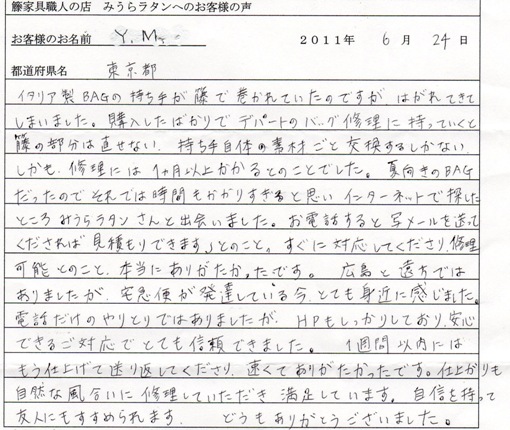 籐家具職人の店 みうらラタンへのお客様の声
お客様のお名前 Y. M 2011年 6月 24日
都道府県名 東京都
イタリア製BAGの持ち手が籐で巻かれていたのですが はがれてきて
しまいました。購入したばかりでデパートのバッグ修理に持っていくと
籐の部分は直せない、持ち手自体の素材ごと交換するしかない、
しかも、修理には1ヶ月以上かかるとのことでした。夏向きのBAG
だったのでそれでは時間もかかりすぎると思いインターネットで探した
ところみうらラタンさんと出会いました。お電話すると「写メールを送って
くだされば見積もりできます」とのこと。すぐに対応してくださり、修理
可能とのこと、本当にありがたかったです。 広島と遠方では
ありましたが、宅急便が発達している今、とても身近に感じました。
電話だけのやりとりではありましたが、HPもしっかりしており、安心
できるご対応でとても信頼できました。 1週間以内には
もう仕上げて送り返してくださり、速くてありがたかったです。仕上がりも
自然な風合いに修理していただき 満足しています。自信を持って
友人にもすすめられます。 どうもありがとうございました。